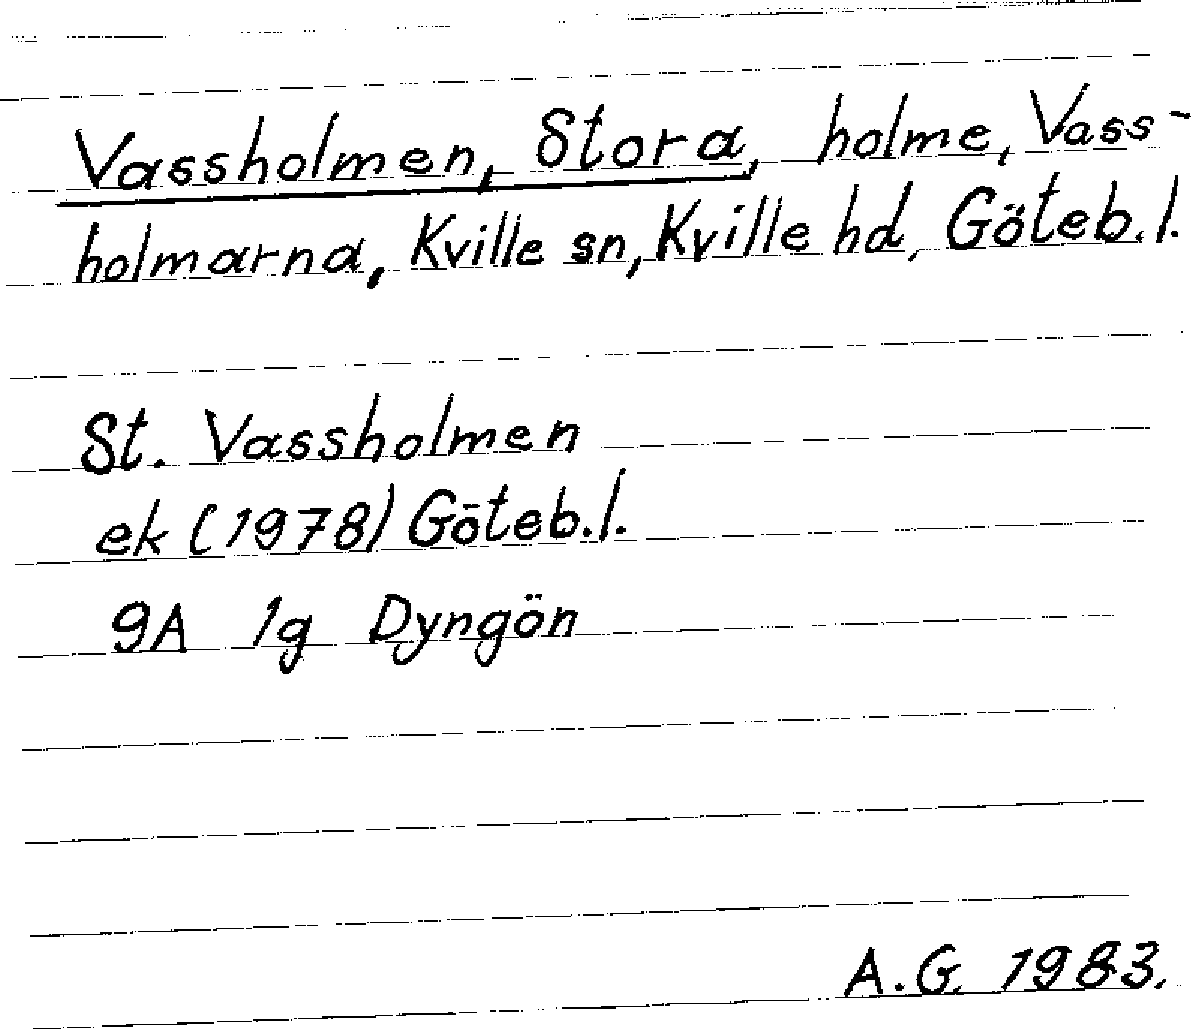 Vassholmen, Stora, holme, Vass-
holmarna, Kville sn, Kville hd, Göteb. l.
St. Vassholmen
ek (1978) Göteb. l.
9A 1g Dyngön
A.G. 1983.